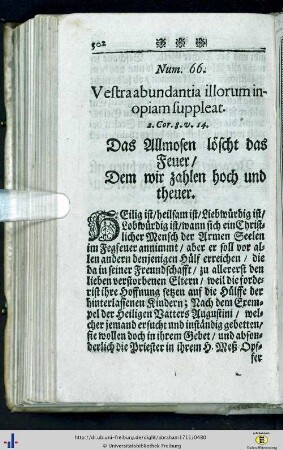 502
Num. 66.
Vestra abundantia illorum in-
opiam suppleat.
2. Cor. 8. v. 14.
Das Allmosen löscht das
Feuer /
Dem wir zahlen hoch und
theuer.
HEilig ist / heilsam ist / Liebwürdig ist /
Lobwürdig ist / wann sich ein Christ-
licher Mensch der Armen Seelen
im Fegfeuer annimmt / aber er soll vor al-
len andern denjenigen Hülf erreichen / die
da in seiner Freundschafft / zu allererst den
lieben verstorbenen Eltern / weil die forde-
rist ihre Hoffnung setzen auf die Hülffe der
hinterlassenen Kindern; Nach dem Exem-
pel der Heiligen Vatters Augustini / wel-
cher jemand ersucht und inständig gebetten /
sie wollen doch in ihrem Gebet / und abson-
derlich die Priester in ihrem H. Meß Opf-
fer
http://dl.ub.uni-freiburg.de/diglit/abraham1711/0480
© Universitätsbibliothek Freiburg